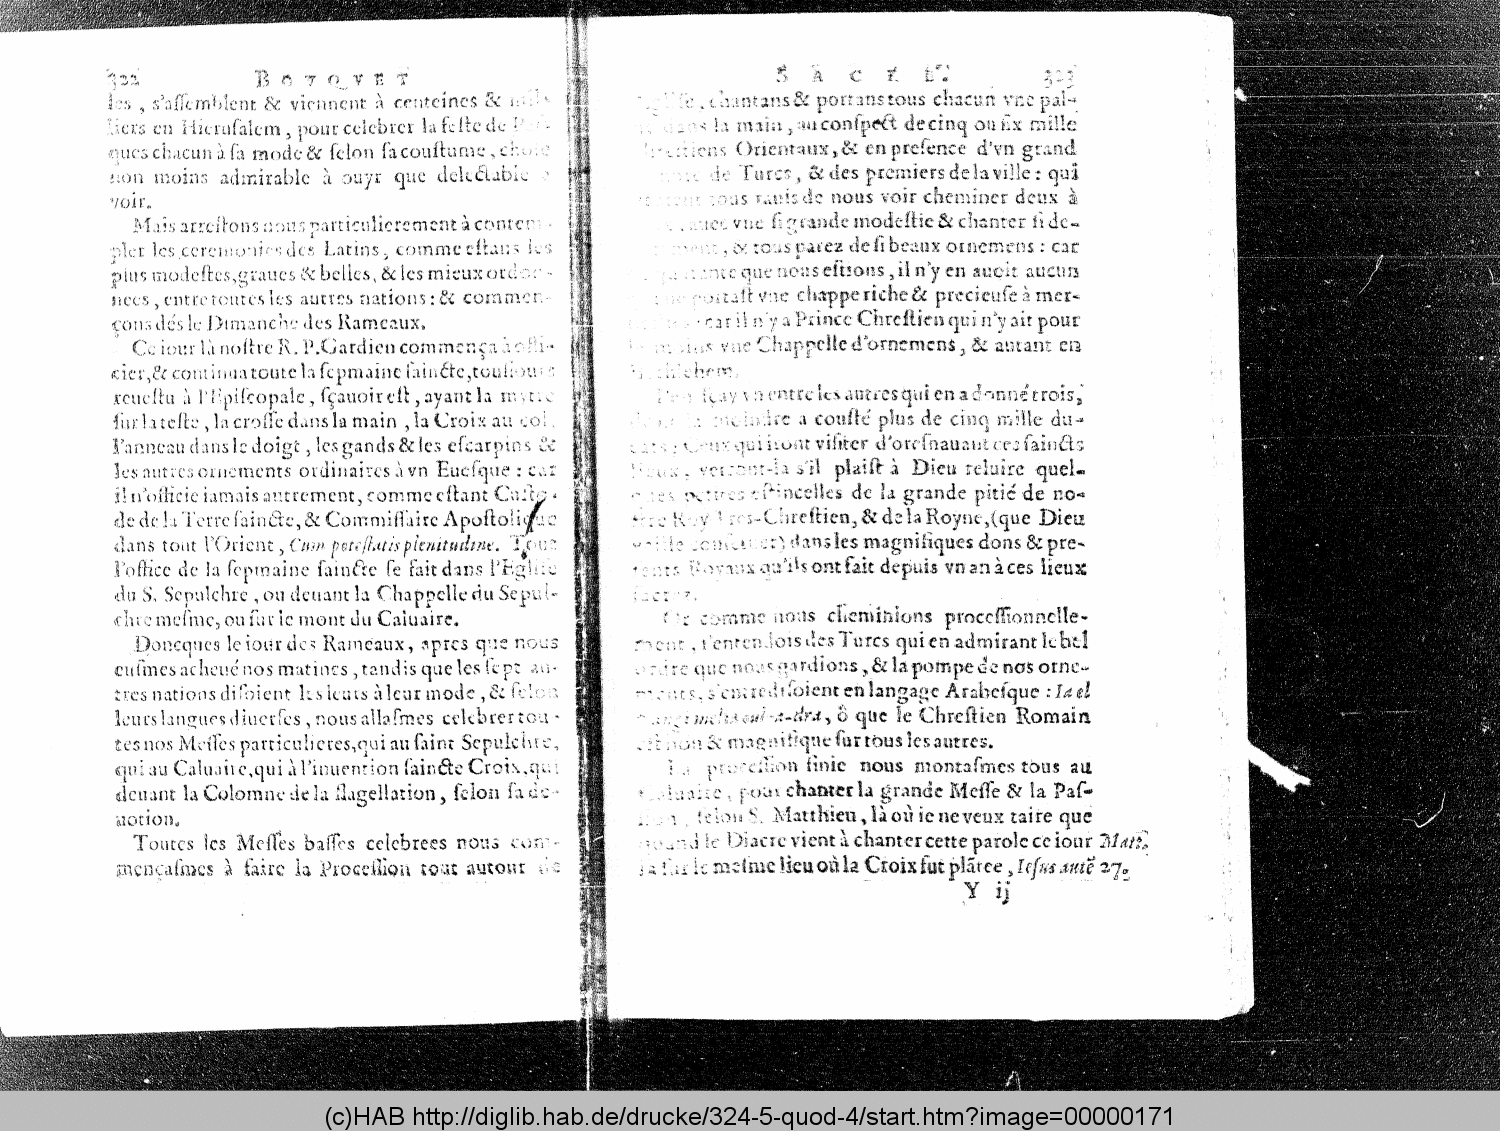 322 BOVQVET
les, s'aſſemblent & viennent à centeines &
liers en Hieruſalem, pour celebrer la feſte de
ques chacun à ſa mode & ſelon ſa couſtume, choſe
non moins admirable à ouyr que delectable
voir.
Mais arreſtons nous particulierement à contem-
pler les ceremonies des Latins, comme eſtans les
plus modeſtes, graues & belles, & les mieux ordon-
nees, entre toutes les autres nations: & commen-
çons dés le Dimanche des Rameaux.
Ce iour là noſtre R. P. Gardien commença à offi-
cier, & continua toute la ſepmaine ſaincte, touſiours
reueſtu à l'Epiſcopale, ſçauoir eſt, ayant la mytre
ſur la teſte, la croſſe dans la main, la Croix au col,
l'anneau dans le doigt, les gands & les eſcarpins &
les autres ornements ordinaires à vn Eueſque: car
il n'officie iamais autrement, comme eſtant Cuſto-
de de la Terre ſaincte, & Commiſſaire Apoſtolique
dans tout l'Orient, Cum poteſtatis plenitudine. Tout
l'office de la ſepmaine ſaincte ſe fait dans l'Egliſe
du S. Sepulchre, ou deuant la Chappelle du Sepul-
chre meſme, ou ſur le mont du Caluaire.
Doncques le iour des Rameaux, apres que nous
euſmes acheué nos matines, tandis que les ſept au-
tres nations diſoient les leurs à leur mode, & ſelon
leurs langues diuerſes, nous allaſmes celebrer tou-
tes nos Meſſes particulieres, qui au ſaint Sepulchre,
qui au Caluaire, qui à l'inuention ſaincte Croix, qui
deuant la Colomne de la flagellation, ſelon ſa de-
uotion.
Toutes les Meſſes baſſes celebrees nous com-
mençaſmes à faire la Proceſſion tout autour de
SACRÉ. 323
chantans & portans tous chacun vne pal-
dans la main, au conſpect de cinq ou ſix mille
Orientaux, & en preſence d'vn grand
de Turcs, & des premiers de la ville: qui
tous rauis de nous voir cheminer deux à
auec vne ſi grande modeſtie & chanter ſi de-
, & tous parez de ſi beaux ornemens: car
que nous eſtions, il n'y en auoit aucun
portaſt vne chappe riche & precieuſe à mer-
car il n'y a Prince Chreſtien qui n'y ait pour
vne Chappelle d'ornemens, & autant en

vn entre les autres qui en a donné trois,
moindre a couſté plus de cinq mille du-
Ceux qui iront viſiter d'oreſnauant ces ſaincts
lieux, verront-là s'il plaiſt à Dieu reluire quel-
ques petites eſtincelles de la grande pitié de no-
ſtre Roy Tres-Chreſtien, & de la Royne, (que Dieu
dans les magnifiques dons & pre-
ſents Royaux qu'ils ont fait depuis vn an à ces lieux
ſacrez.
Or comme nous cheminions proceſſionnelle-
ment, i'entendois des Turcs qui en admirant le bel
ordre que nous gardions, & la pompe de nos orne-
ments, s'entrediſoient en langage Arabeſque: Ia el
ô que le Chreſtien Romain
eſt bon & magnifique ſur tous les autres.
La proceſſion finie nous montaſmes tous au
Caluaire, pour chanter la grande Meſſe & la Paſ-
ſion, ſelon S. Matthieu, là où ie ne veux taire que
quand le Diacre vient à chanter cette parole ce iour Matt.
là ſur le meſme lieu où la Croix fut plātee, Ieſus autē 27.
Y ij
(c)HAB http://diglib.hab.de/drucke/324-5-quod-4/start.htm?image=00000171